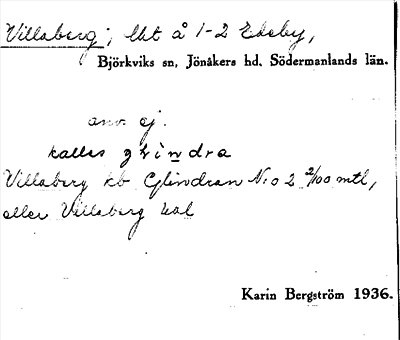 Villaberg; lht å 1-2 Edeby,
Björkviks sn, Jönåkers hd. Södermanlands län.
anv. ej.
kallas glindra
Villaberg kb Glindran No 2 2/100 mtl,
eller Villaberg kal
Karin Bergström 1936.